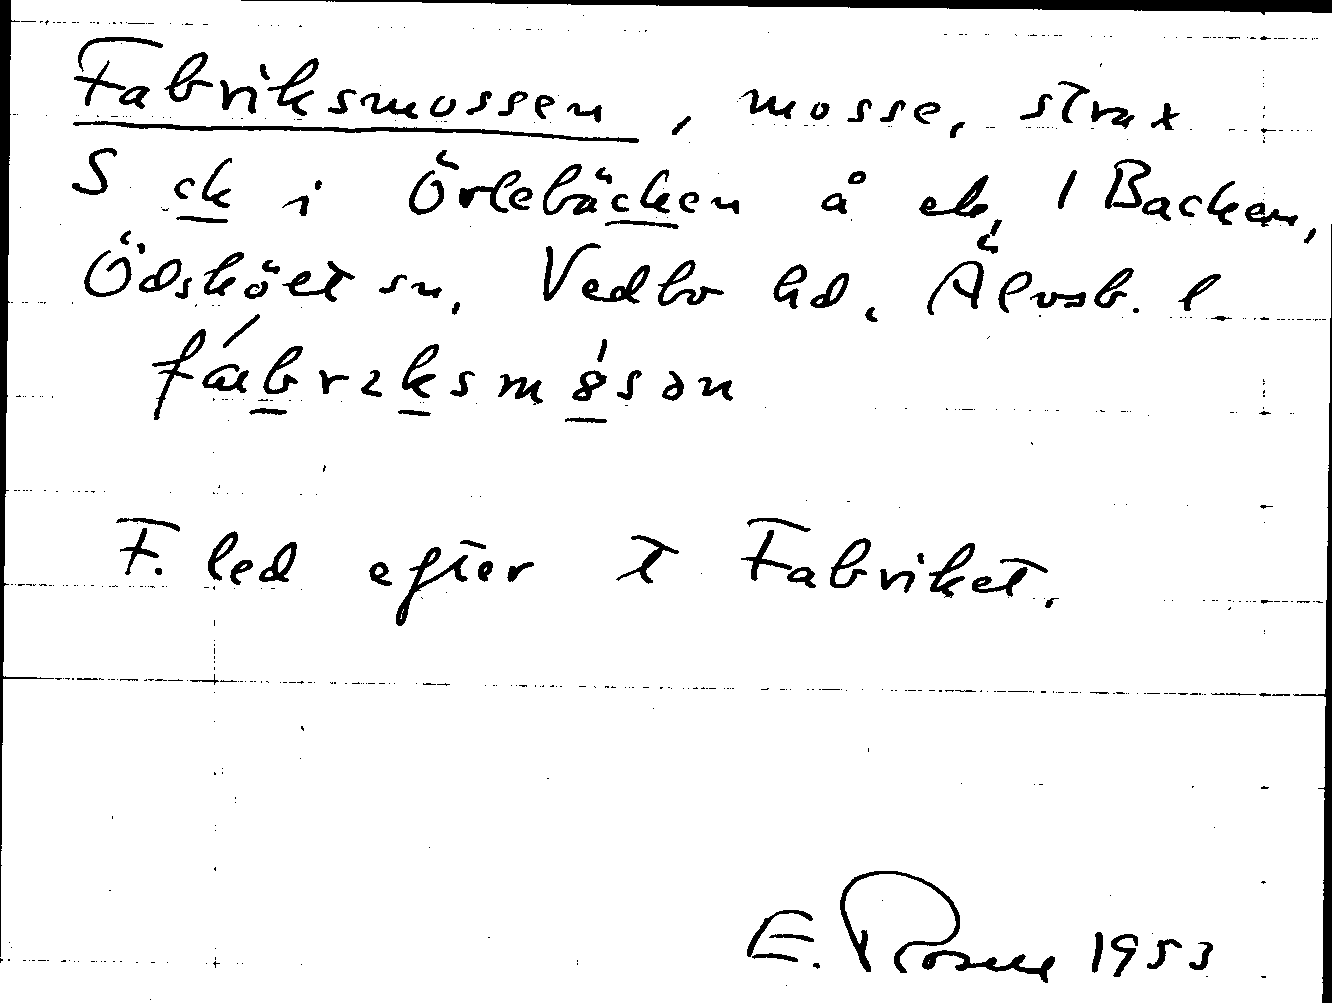 Fabriksmossen, mosse, strax
S ck i Örlebäcken å ek, 1 Backen,
Ödsköelt sn, Vedbo hd. Älvsb. l
F. led efter t Fabriket.
E. 1953